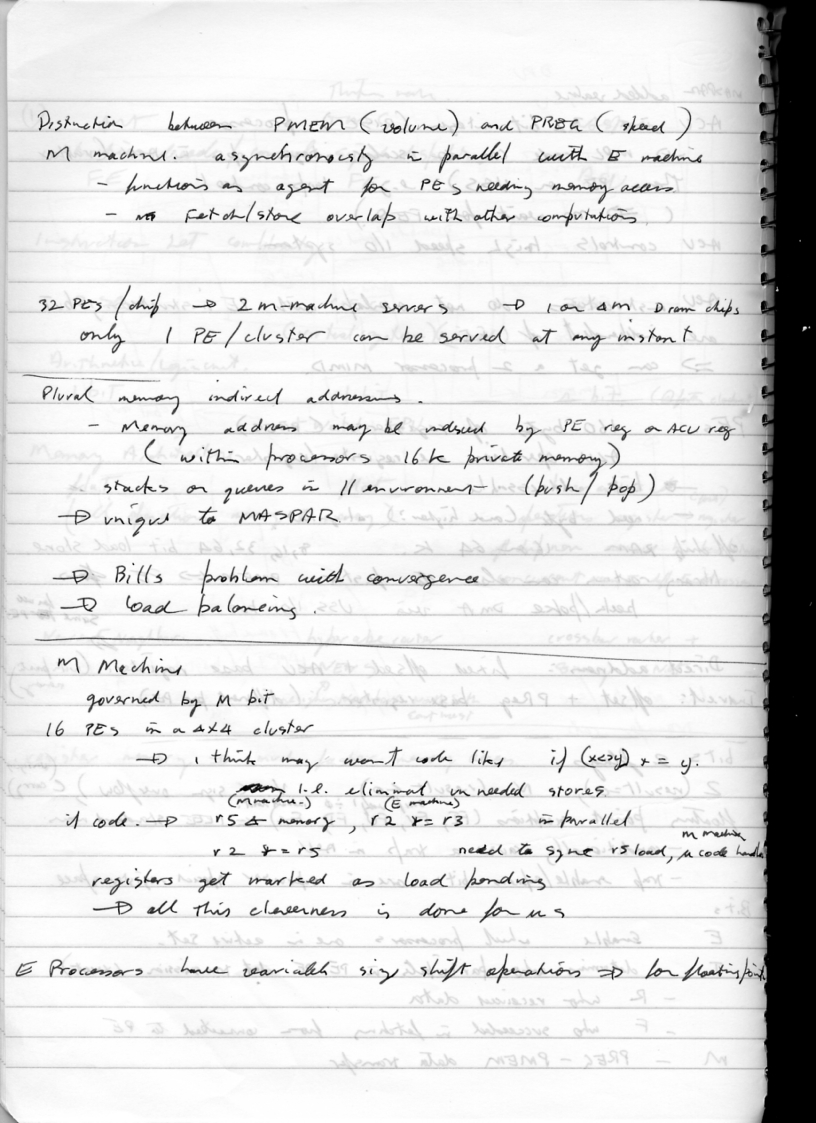 Distinction between PMEM (volume) and PREG (speed)
M machine. asynchronously in parallel with E machine
- functions as agent for PEs needing memory access
- Fetch/store overlap with other computations
32 PEs/chip → 2 m-machine servers → 1 or 4m Dram chips
only 1 PE/cluster can be served at any instant
Plural memory indirect addressing.
- Memory address may be indexed by PE reg or ACU reg
(within processors 16k private memory)
stacks or queues in // environment (push/pop)
→ unique to MASPAR
→ Bills problem with convergence
→ load balancing.
M Machine
governed by M bit
16 PEs in a 4x4 cluster
→ I think may want code like if (x<>y) x = y.
i.e. eliminat un needed stores
(M machine.) (E machine)
il code. → r5 ← memory, r2 *= r3 in parallel
m machine
r2 *= r5 need to sync r5 load, μ code handle
registers get marked as load pending
→ all this cleverness is done for us
E Processors have variable size shift operations ⇒ for floating point